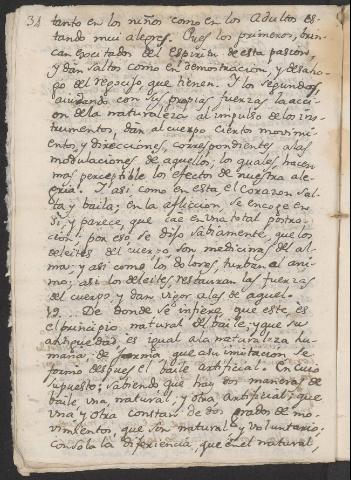 34 tanto en los niños como en los adultos es-
tando mui alegres. Pues los primeros, brin-
can excitados del espiritu de esta pasion,
y dan saltos como en demostracion, y desaho-
go del regocijo que tienen. Y los segundos,
ayudando con sus propias fuerzas la acci-
on de la naturaleza al impulso de los ins-
trumentos, dan al cuerpo cierto movimi-
ento, y direcciones, correspondientes a las
modulaciones de aquellos; los quales hacen
mas perceptible los efectos de nuestra ale-
gria. Y asi como en esta el corazon sal-
ta y baila; en la afliccion, se encoge en
si, y parece, que cae en una total postra-
cion; por eso, se dijo sabiamente, que los
deleites del cuerpo, son medicina del al-
ma: y asi como los dolores, turban al ani-
mo; asi los deleites, restauran las fuerzas
del cuerpo, y dan vigor a las de aquel.
De donde se infiere, que este, es
el principio natural del baile; y que su
antiguedad, es igual a la naturaleza hu-
mana; de forma, que a su imitacion se
formo despues el baile artificial. En cuio
supuesto; sabiendo que hay dos maneras de
baile, una, natural; y otra artificial; que
una y otra constan de dos grados de mo-
vimientos, que son natural y voluntario.
Con sola la diferiencia, que en el natural,